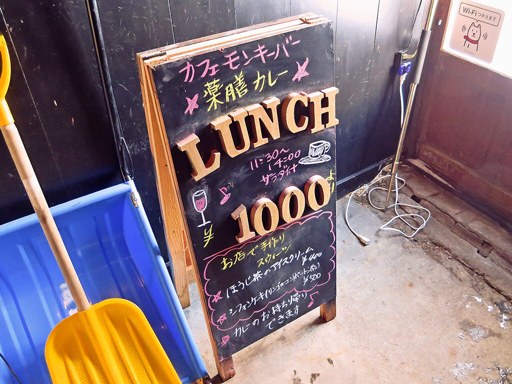 カフェモンキーバー
薬膳カレー
LUNCH
11:30〜
14:00
サラダ付
¥
1000
より
お店で手作り
スウィーツ
ほうじ茶のアイスクリーム
¥400
シフォンケーキ
¥500
カレーのお持ち帰り
できます
Wi-Fiつかえます